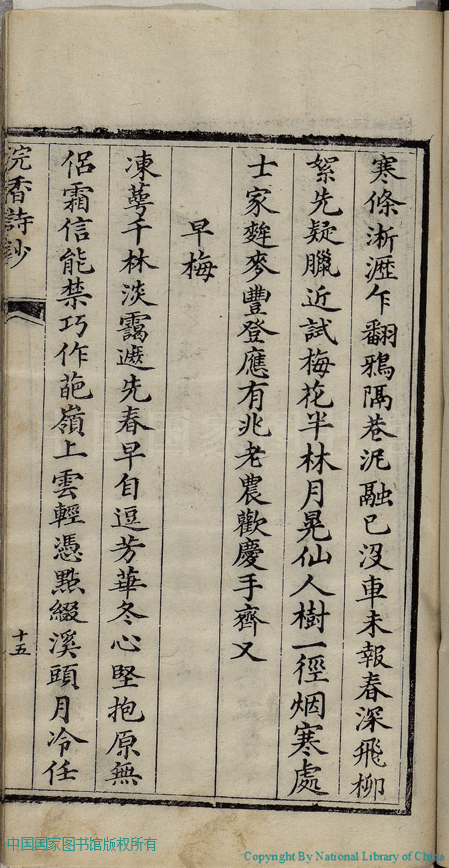 寒條淅瀝乍翻鴉隔巷泥融已沒車未報春深飛柳
絮先疑臘近試梅花半林月晃仙人樹一徑烟寒處
士家麰麥豐登應有兆老農歡慶手齊叉
早梅
凍萼千林淡靄遮先春早自逗芳華冬心堅抱原無
侶霜信能禁巧作葩嶺上雲輕憑點綴溪頭月冷任
浣香詩鈔
十五
中国国家图书馆版权所有
Copyright By National Library of China